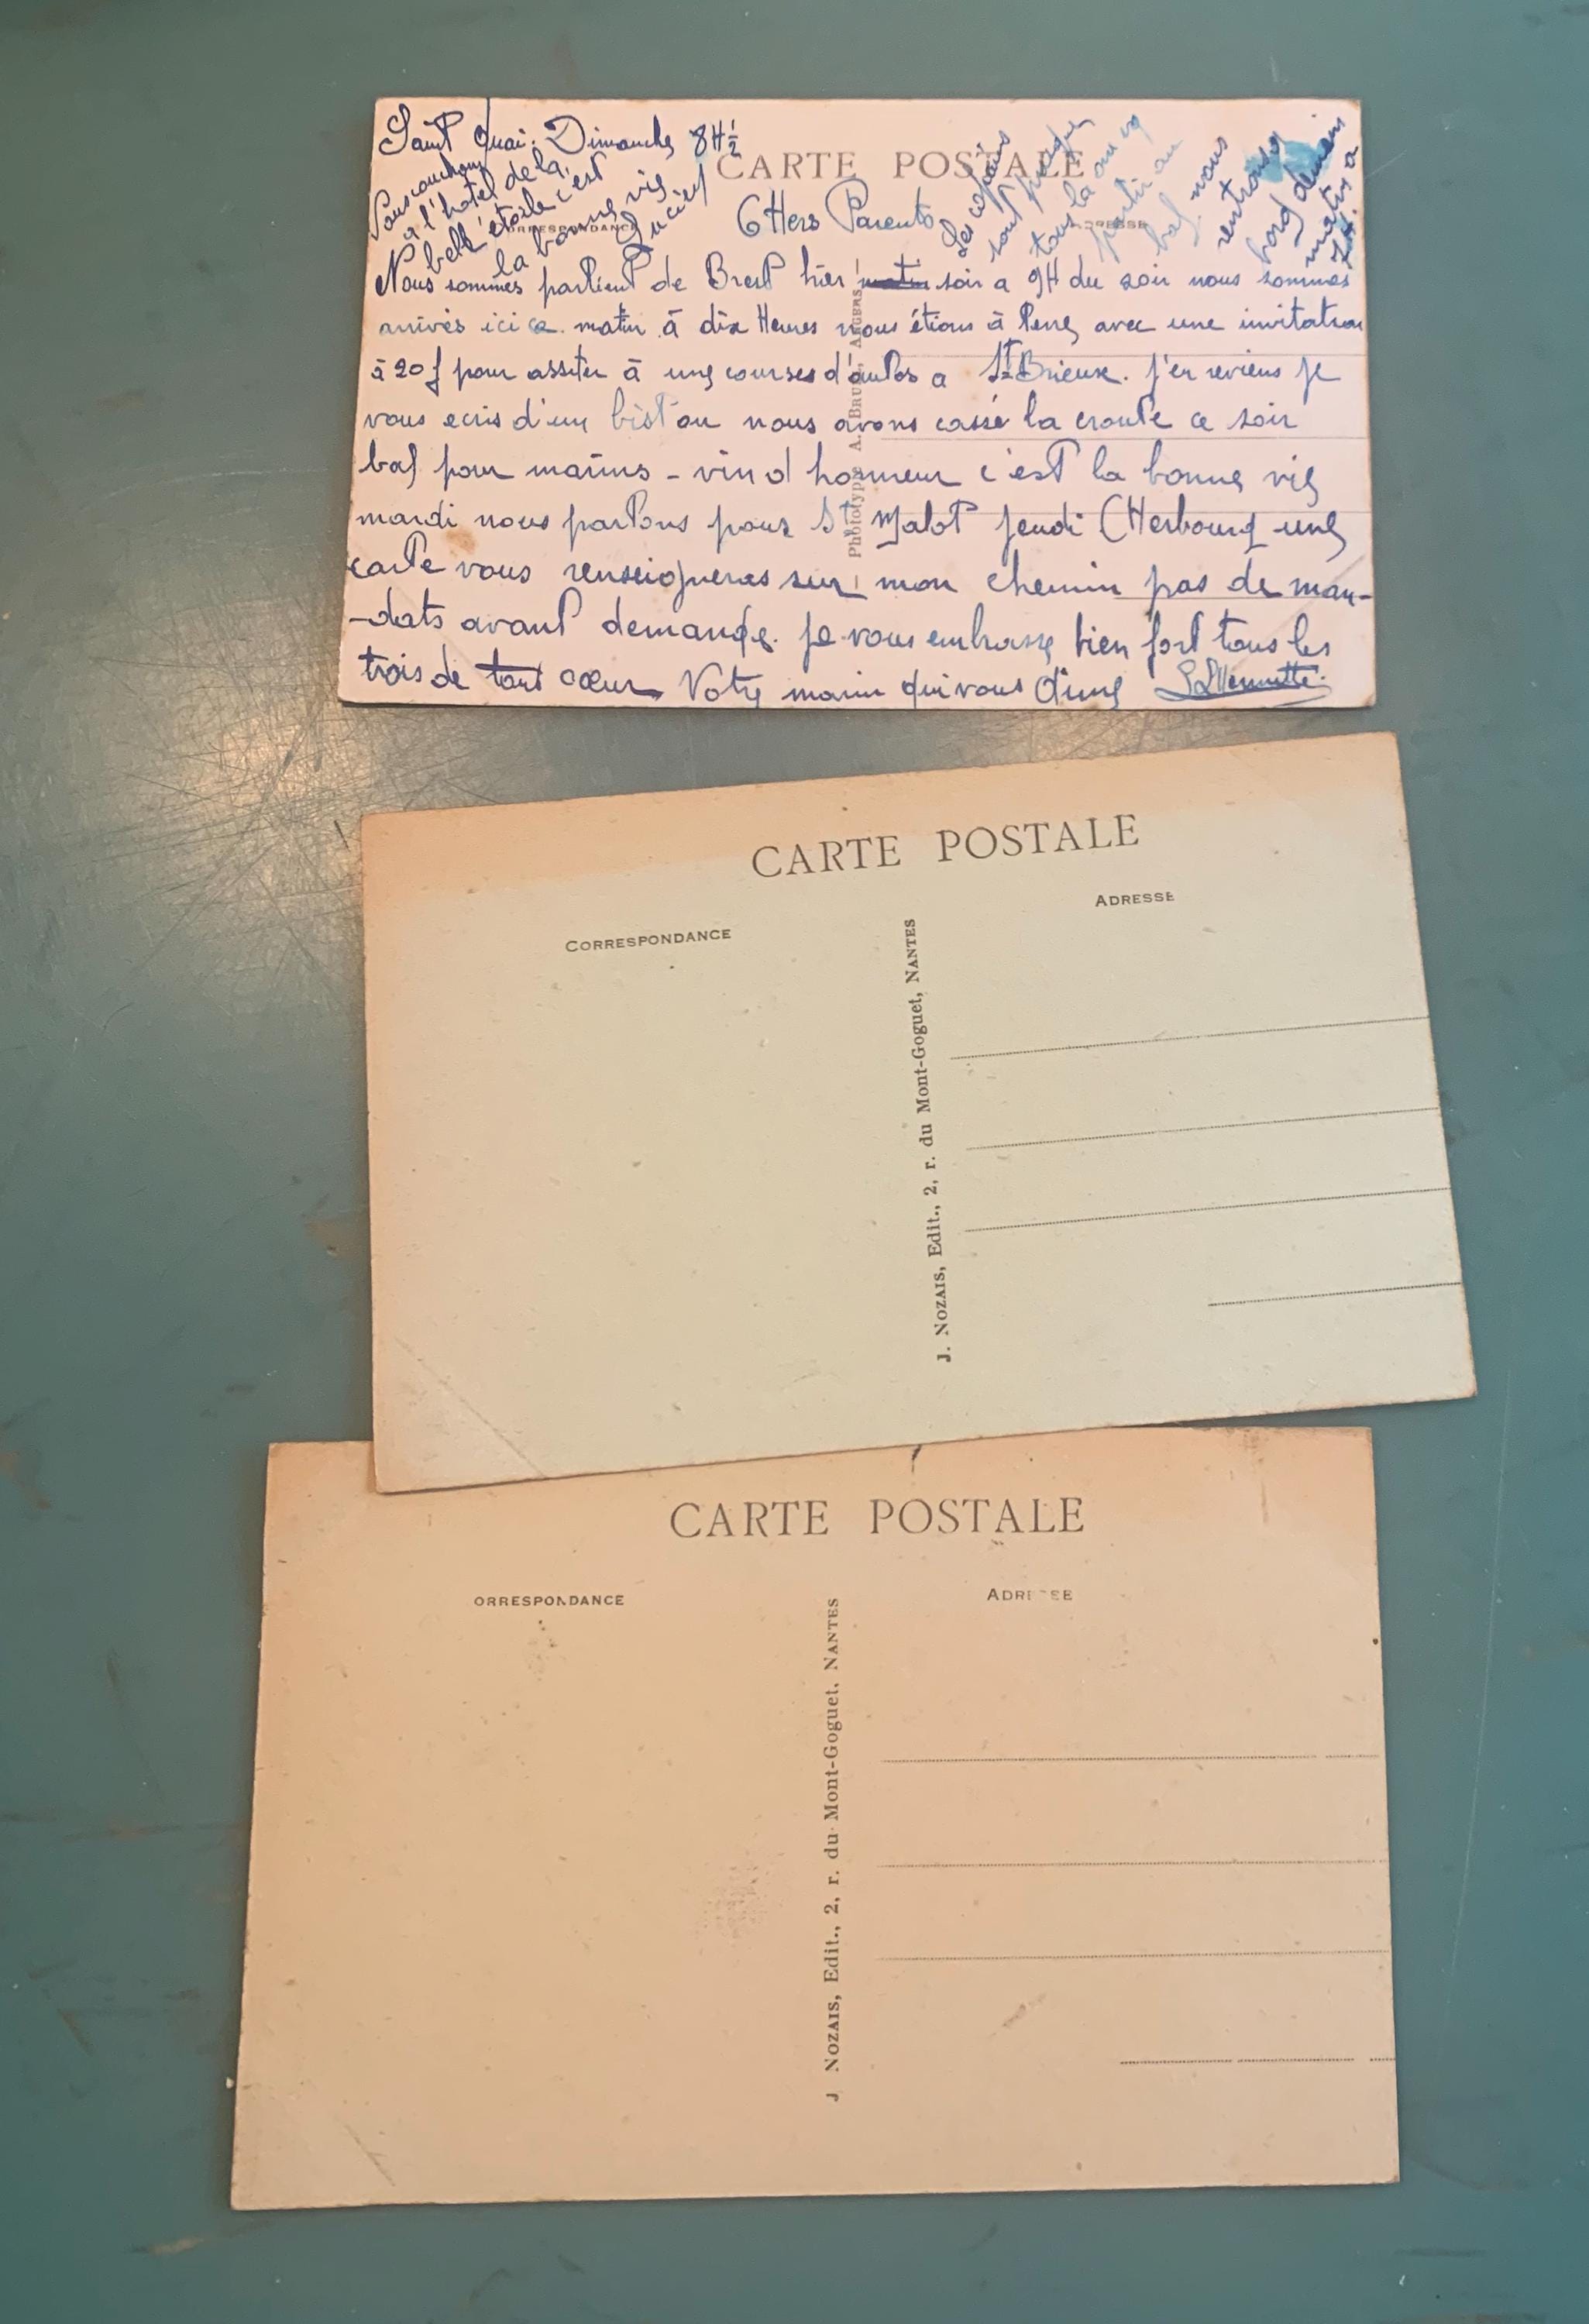 Saint Quai. Dimanche 8H½
CARTE POSTALE
Nous couchons
a l'hotel de la
belle étoile c'est
la bonne vie
Lucien
CORRESPONDANCE
CHers Parents
Les copains
sont presque
tous la on va
partir au
bal nous
rentrons a
bord demain
matin a
7H.
ADRESSE
Nous sommes partient de Brest hier matin soir a 9H du soir nous sommes
arrivés ici ce matin à dix Heures nous étions à avec une invitation
à 20f pour assiter à une courses d'autos a St Brieux. j'en reviens je
vous ecris d'un bistau nous avons cassé la croute ce soir
bal pour marins - vin d honneur c'est la bonne vie
mardi nous partons pour St Malot jeudi CHerbourg une
carte vous renseigneras sur mon chemin pas de man-
-dats avant demande. je vous embrasse bien fort tous les
trois de tout cœur Votre marin qui vous aime
Phototypie A. Bruel, Angers
CARTE POSTALE
CORRESPONDANCE
ADRESSE
J. NOZAIS, Edit., 2, r. du Mont-Goguet, NANTES
CARTE POSTALE
ORRESPONDANCE
ADRESSE
J NOZAIS, Edit., 2, r. du Mont-Goguet, NANTES